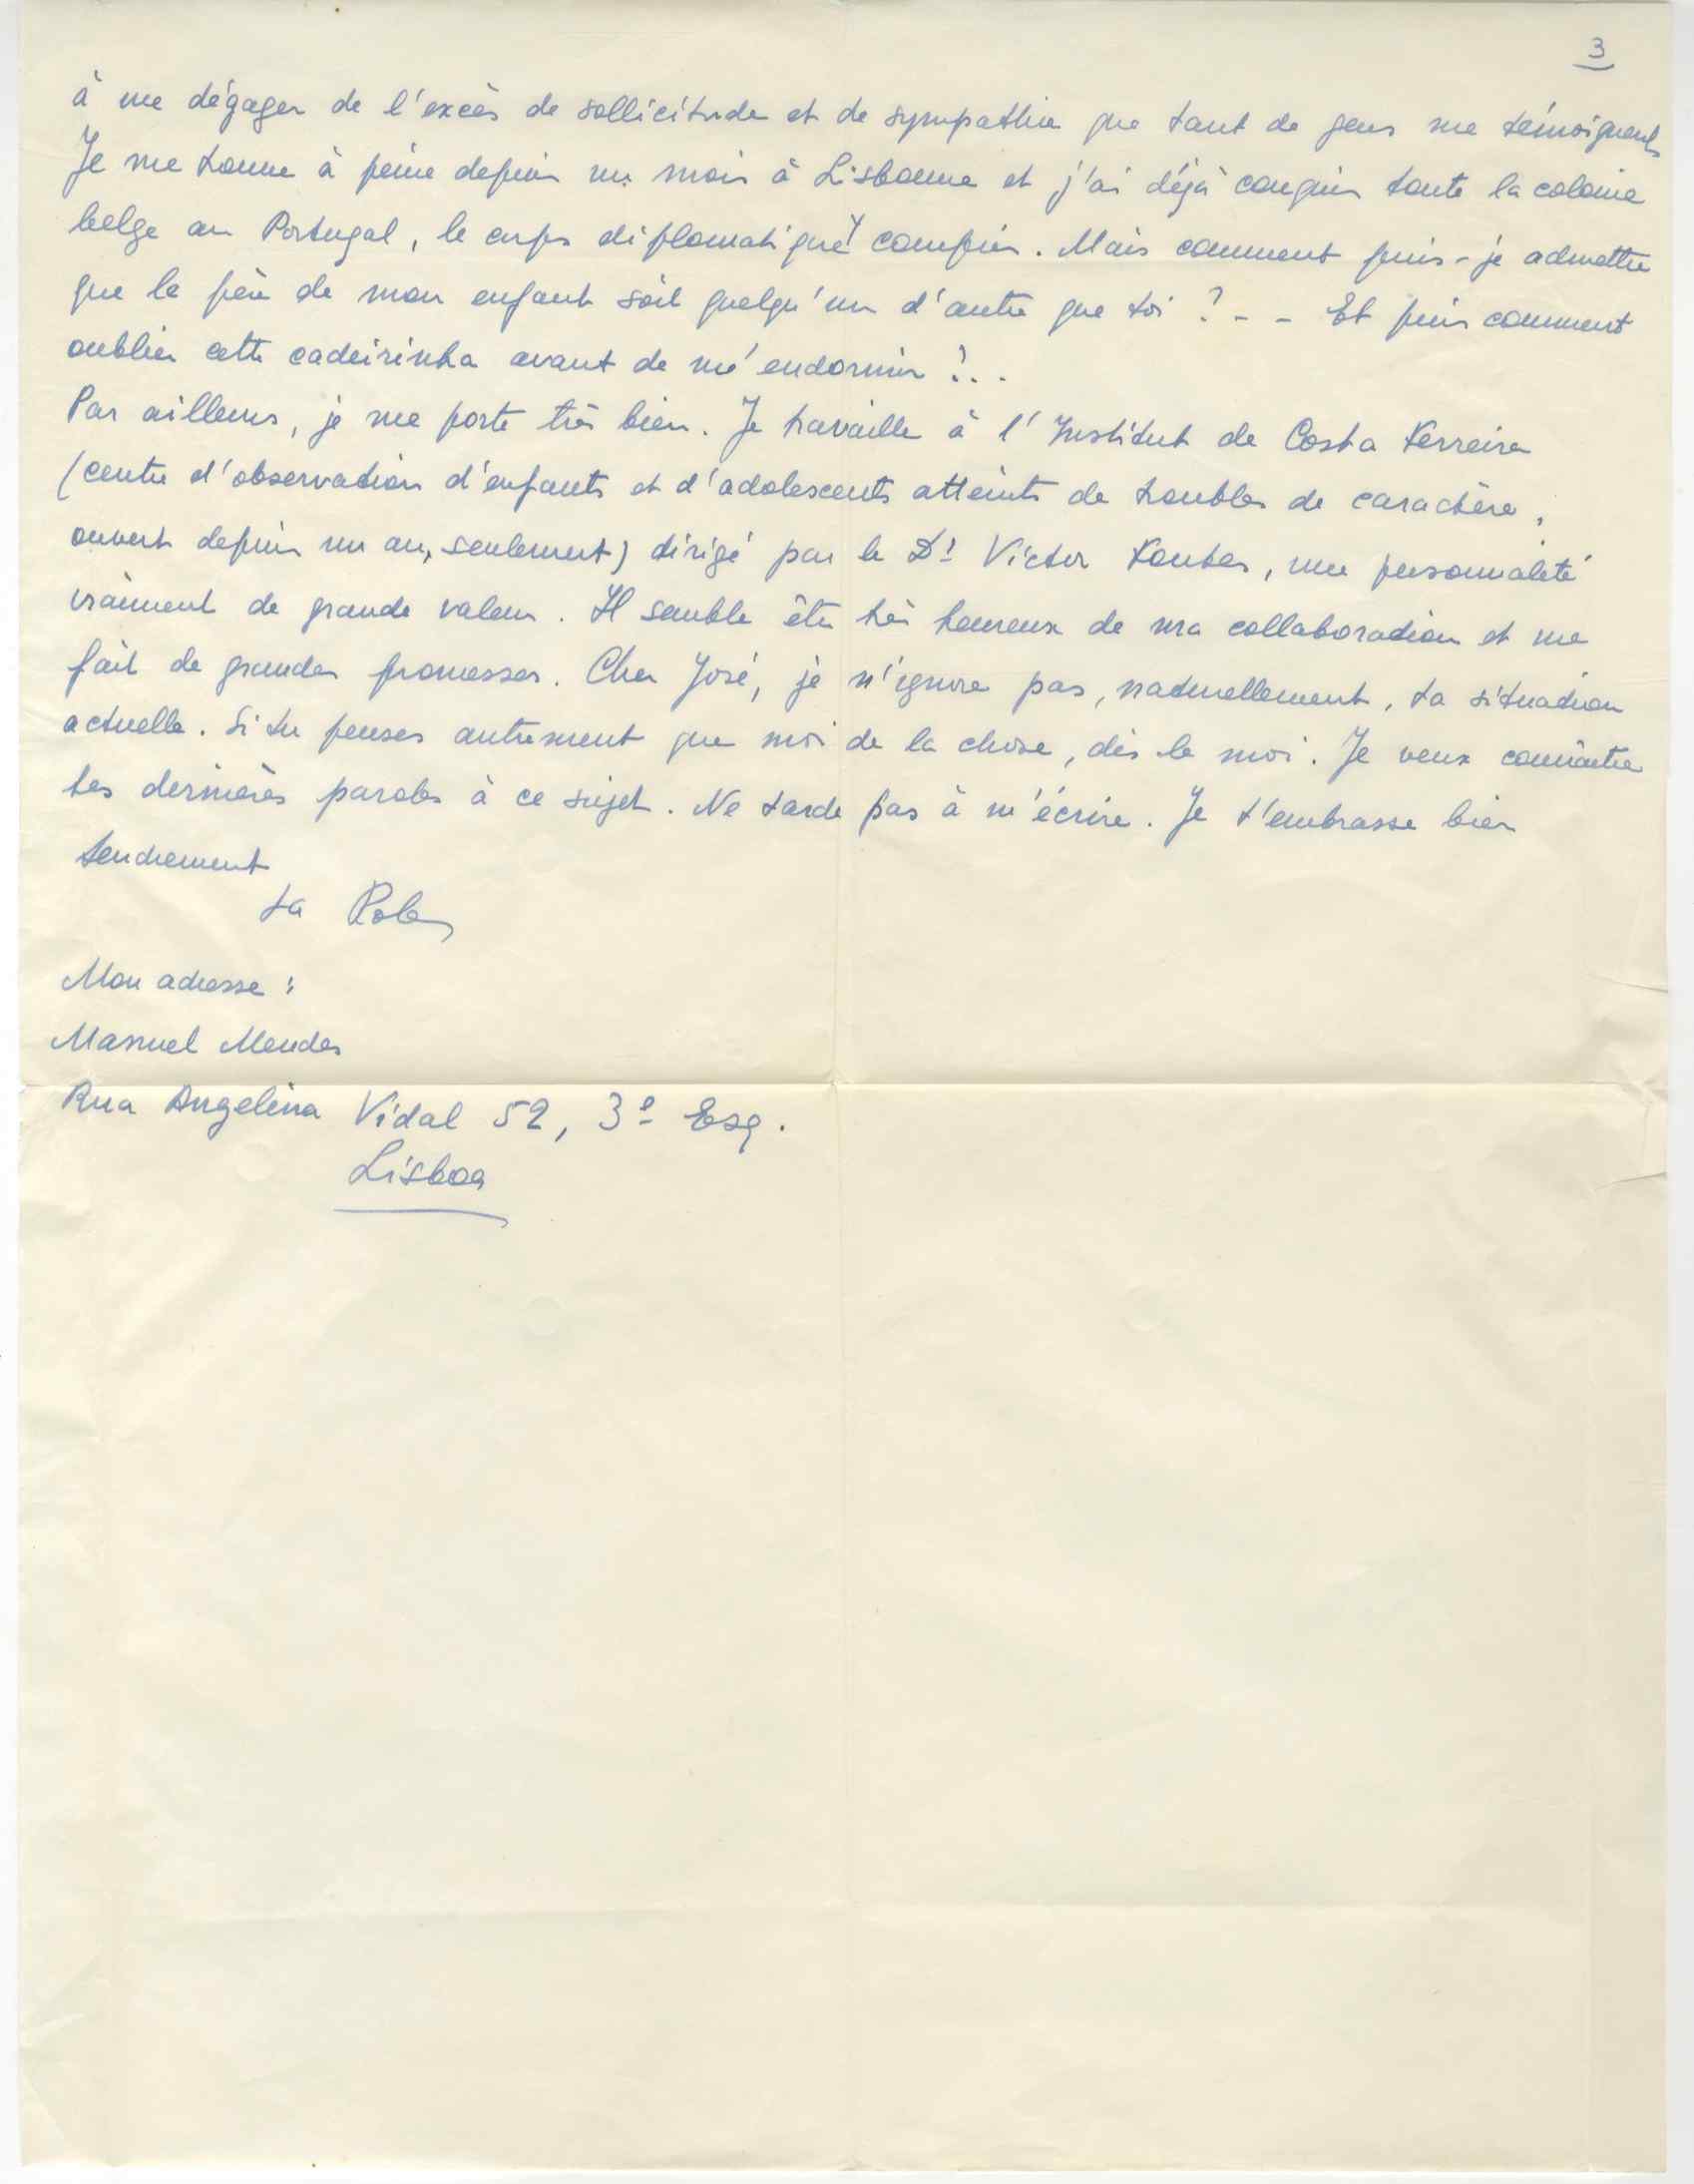 3
à me dégager de l'excès de sollicitude et de sympathie que tant de gens me témoignent
Je me trouve à peine depuis un mois à Lisbonne et j'ai déjà conquis toute la colonie
belge au Portugal, le corps diplomatique y compris. Mais comment puis-je admettre
que le père de mon enfant soit quelqu'un d'autre que toi ? - - Et puis comment
oublier cette cadeirinha avant de m'endormir !..
Par ailleurs, je me porte très bien. Je travaille à l'Institut de Costa Ferreira
(centre d'observation d'enfants et d'adolescents atteints de troubles de caractère,
ouvert depuis un an, seulement) dirigé par le Dr Victor Fontes, une personnalité
vraiment de grande valeur. Il semble être très heureux de ma collaboration et me
fait de grandes promesses. Cher José, je n'ignore pas, naturellement, ta situation
actuelle. Si tu penses autrement que moi de la chose, dis le moi. Je veux connaître
tes dernières paroles à ce sujet. Ne tarde pas à m'écrire. Je t'embrasse bien
tendrement
ta
Mon adresse :
Manuel Mendes
Rua Angelina Vidal 52, 3º Esq.
Lisboa